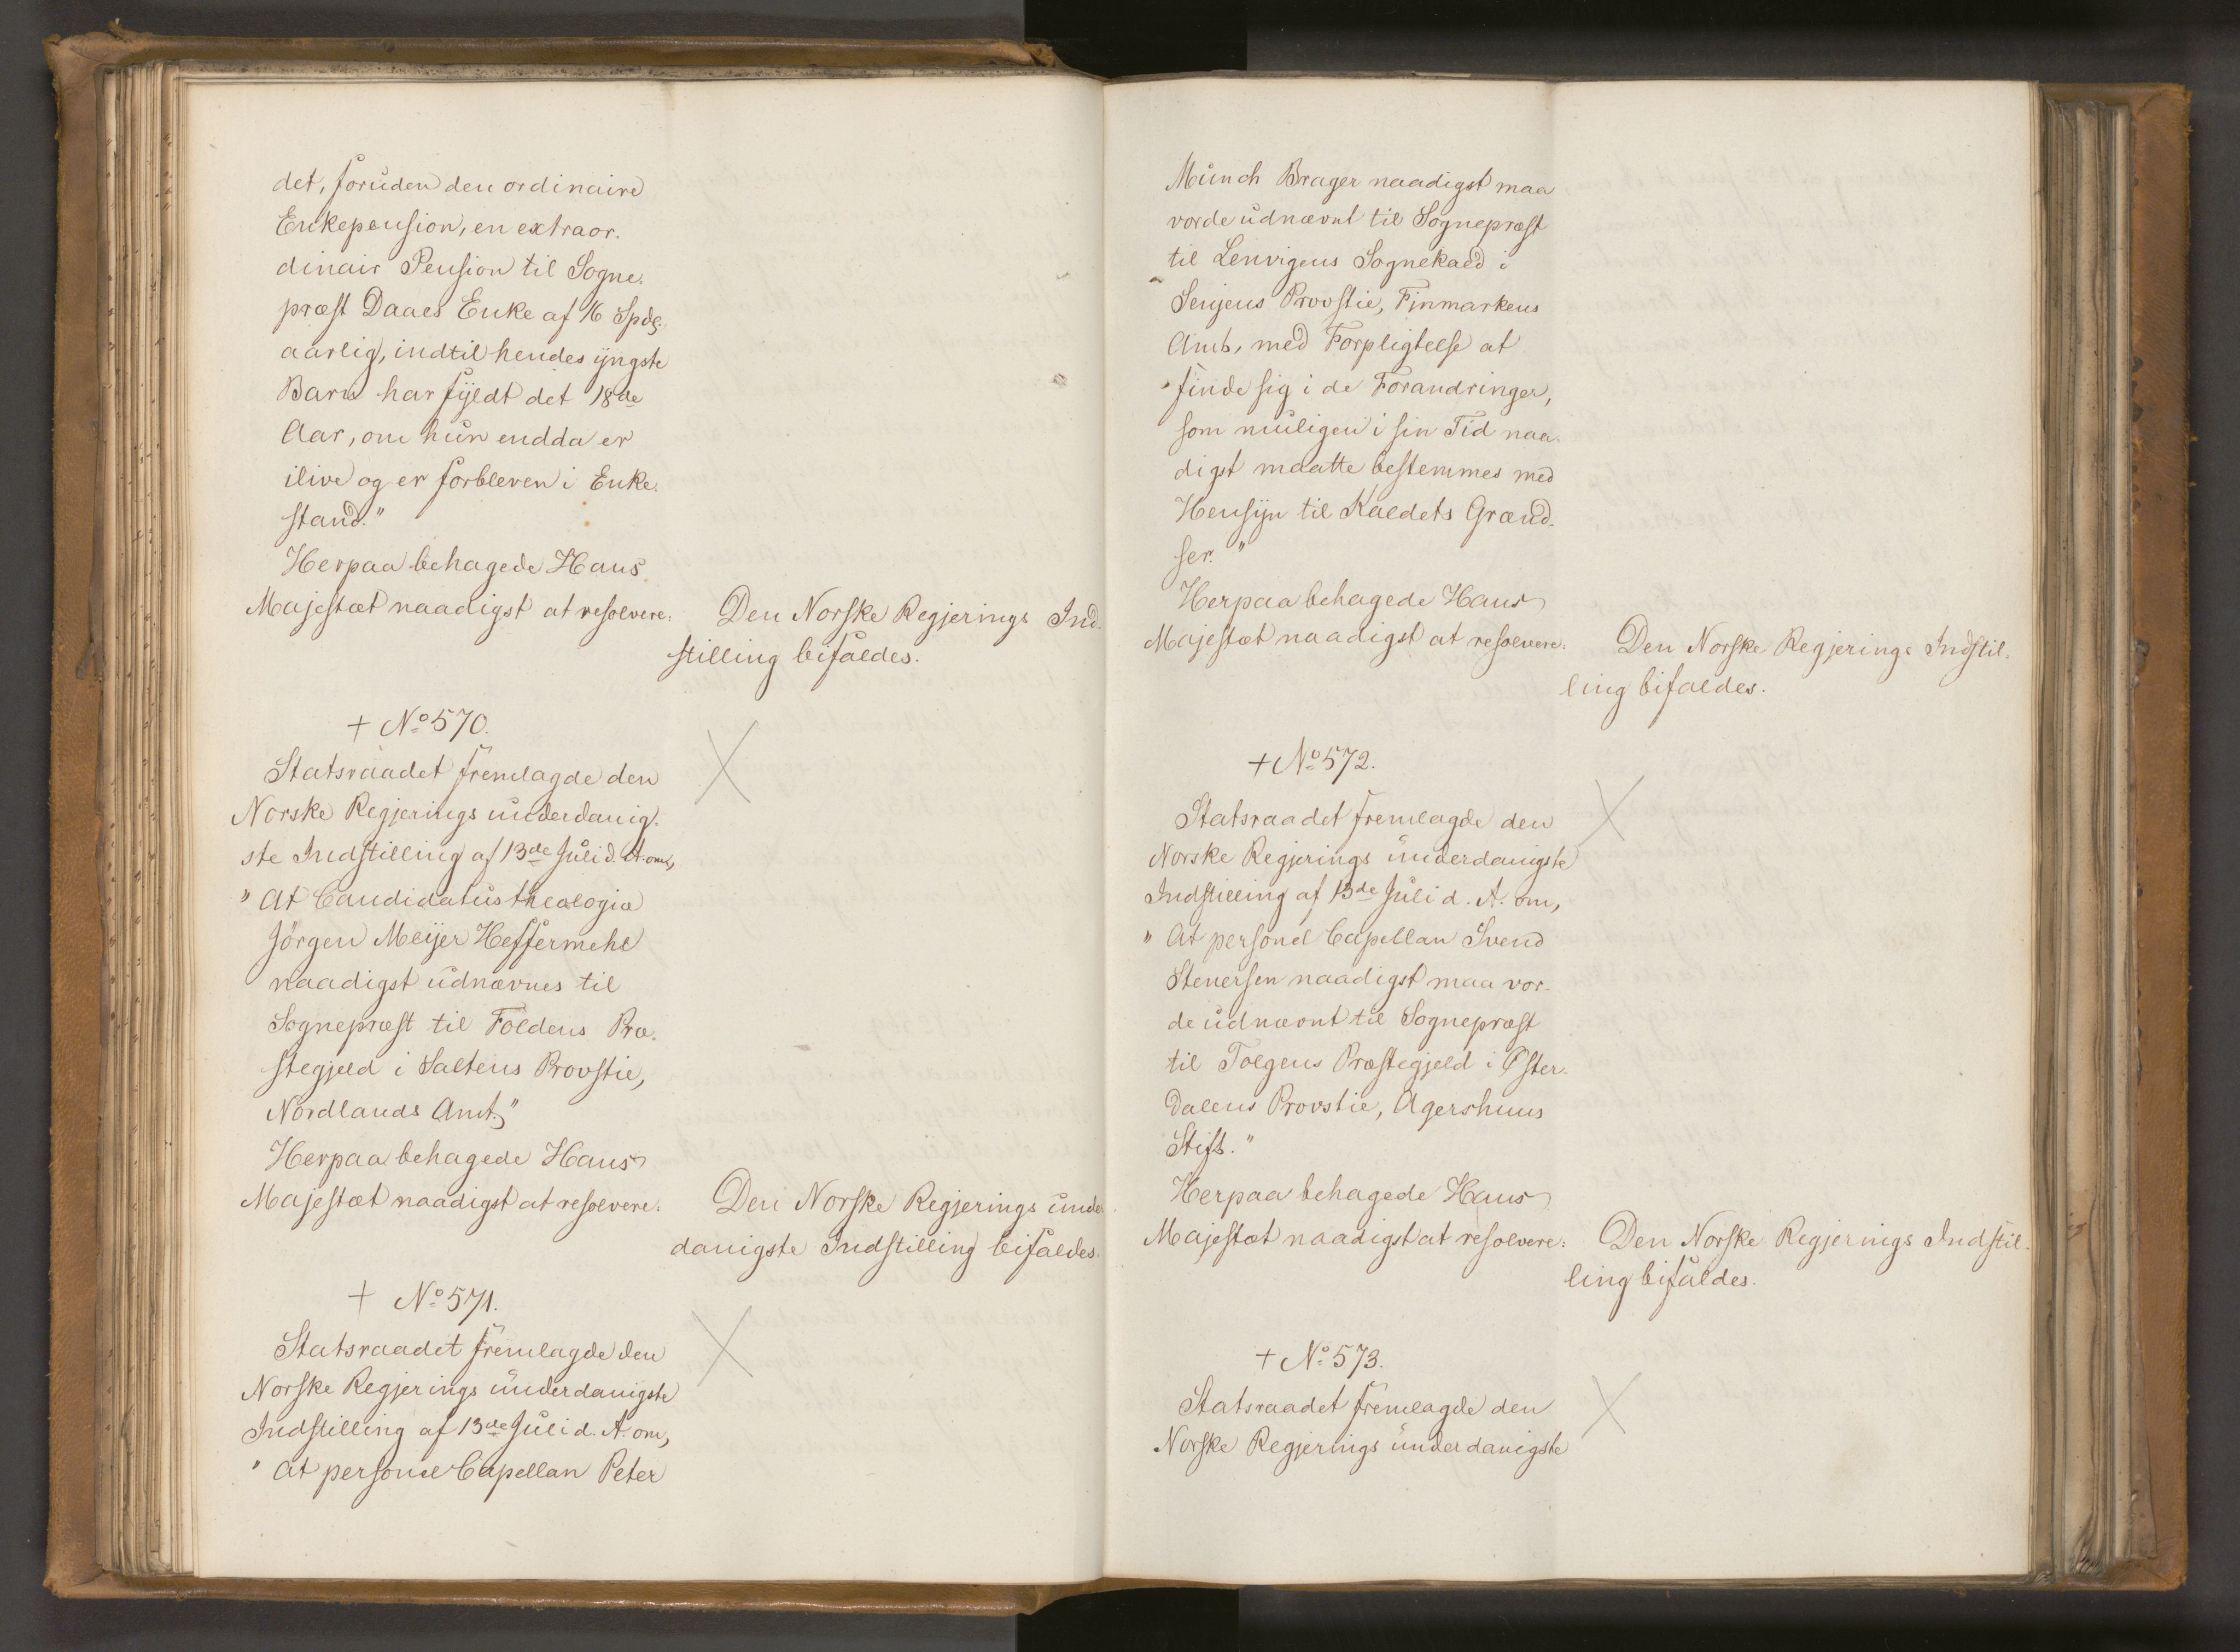 det, foruden den ordinaire
Enkepension, en extraor-
dinair Pension til Sogne-
præst Daaes Enke af 16 Spd.
aarlig, indtil hendes yngste
Barn har fyldt det 18de
Aar, om hun endda er
ilive og er forbleven i Enke-
stand."
Herpaa behagede Hans
Majestæt naadigst at resolvere:
Den Norske Regjerings Ind-
stilling bifaldes.
+ No 570.
Statsraadet fremlagde den
Norske Regjerings underdanig-
ste Indstilling af 13de Juli d. A. om,
" At Candidatus theologiæ
Jörgen Meyer Heffermehl
naadigst udnævnes til
Sognepræst til Foldens Præ-
stegjeld i Saltens Provstie,
Nordlands Amt."
Herpaa behagede Hans
Majestæt naadigst at resolvere:
Den Norske Regjerings under
danigste Indstilling bifaldes.
+ No 571.
Statsraadet fremlagde den
Norske Regjerings underdanigste
Indstilling af 13de Juli d. A. om,
" At personel Capellan Peter
Munch Brager naadigst maa
vorde udnævnt til Sognepræst
til Lenvigens Sognekald i
Senjens Provstie, Finmarkens
Amt, med Forpligtelse at
finde sig i de Forandringer,
som muligen i sin Tid naa-
digst maatte bestemmes med
Hensyn til Kaldets Grænd-
ser."
Herpaa behagede Hans
Majestæt naadigst at resolvere:
Den Norske Regjerings Indstil-
ling bifaldes.
+ No 572.
Statsraadet fremlagde den
Norske Regjerings underdanigste
Indstilling af 13de Juli d. A. om,
" At personel Capellan Svend
Stenersen naadigst maa vor-
de udnævnt til Sognepræst
til Tolgens Præstegjeld i Øster-
dalens Provstie, Agershuus
Stift."
Herpaa behagede Hans
Majestæt naadigst at resolvere:
Den Norske Regjerings Indstil-
ling bifaldes.
+ No 573.
Statsraadet fremlagde den
Norske Regjerings underdanigste